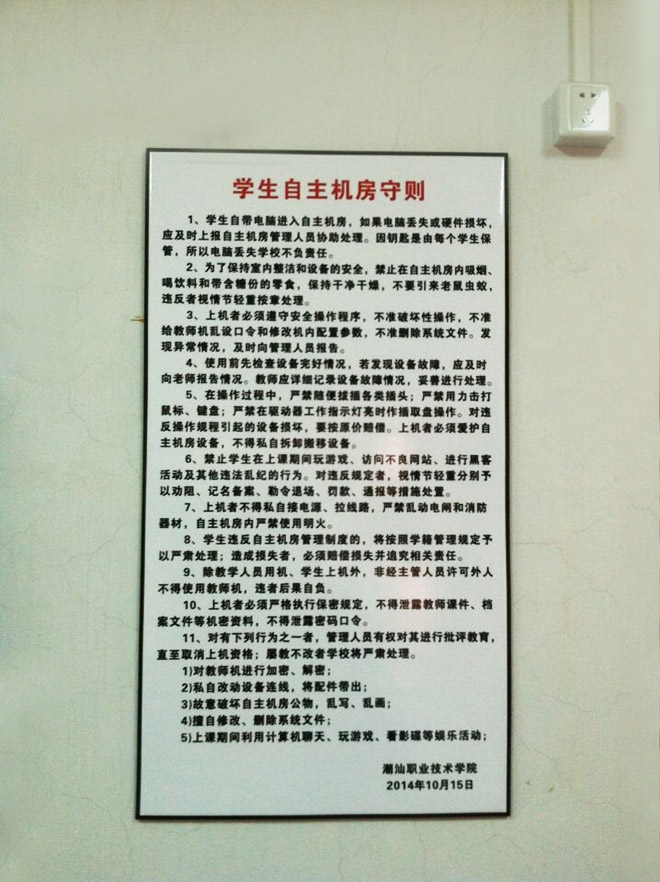 学生自主机房守则
1、学生自带电脑进入自主机房，如果电脑丢失或硬件损坏，
应及时上报自主机房管理人员协助处理。因钥匙是由每个学生保
管，所以电脑丢失学校不负责任。
2、为了保持室内整洁和设备的安全，禁止在自主机房内吸烟、
喝饮料和带含糖份的零食，保持干净干燥，不要引来老鼠虫蚁，
违反者视情节轻重按章处理。
3、上机者必须遵守安全操作程序，不准破坏性操作，不准
给教师机乱设口令和修改机内配置参数，不准删除系统文件。发
现异常情况，及时向管理人员报告。
4、使用前先检查设备完好情况，若发现设备故障，应及时
向老师报告情况。教师应详细记录设备故障情况，妥善进行处理。
5、在操作过程中，严禁随便拔插各类插头；严禁用力击打
鼠标、键盘；严禁在驱动器工作指示灯亮时作插取盘操作。对违
反操作规程引起的设备损坏，要按原价赔偿。上机者必须爱护自
主机房设备，不得私自拆卸搬移设备。
6、禁止学生在上课期间玩游戏、访问不良网站、进行黑客
活动及其他违法乱纪的行为。对违反规定者，视情节轻重分别予
以劝阻、记名备案、勒令退场、罚款、通报等措施处置。
7、上机者不得私自接电源、拉线路，严禁乱动电闸和消防
器材，自主机房内严禁使用明火。
8、学生违反自主机房管理制度的，将按照学籍管理规定予
以严肃处理；造成损失者，必须赔偿损失并追究相关责任。
9、除教学人员用机、学生上机外，非经主管人员许可外人
不得使用教师机，违者后果自负。
10、上机者必须严格执行保密规定，不得泄露教师课件、档
案文件等机密资料，不得泄露密码口令。
11、对有下列行为之一者，管理人员有权对其进行批评教育，
直至取消上机资格；屡教不改者学校将严肃处理。
1)对教师机进行加密、解密；
2)私自改动设备连线，将配件带出；
3)故意破坏自主机房公物，乱写、乱画；
4)擅自修改、删除系统文件；
5)上课期间利用计算机聊天、玩游戏、看影碟等娱乐活动；
潮汕职业技术学院
2014年10月15日